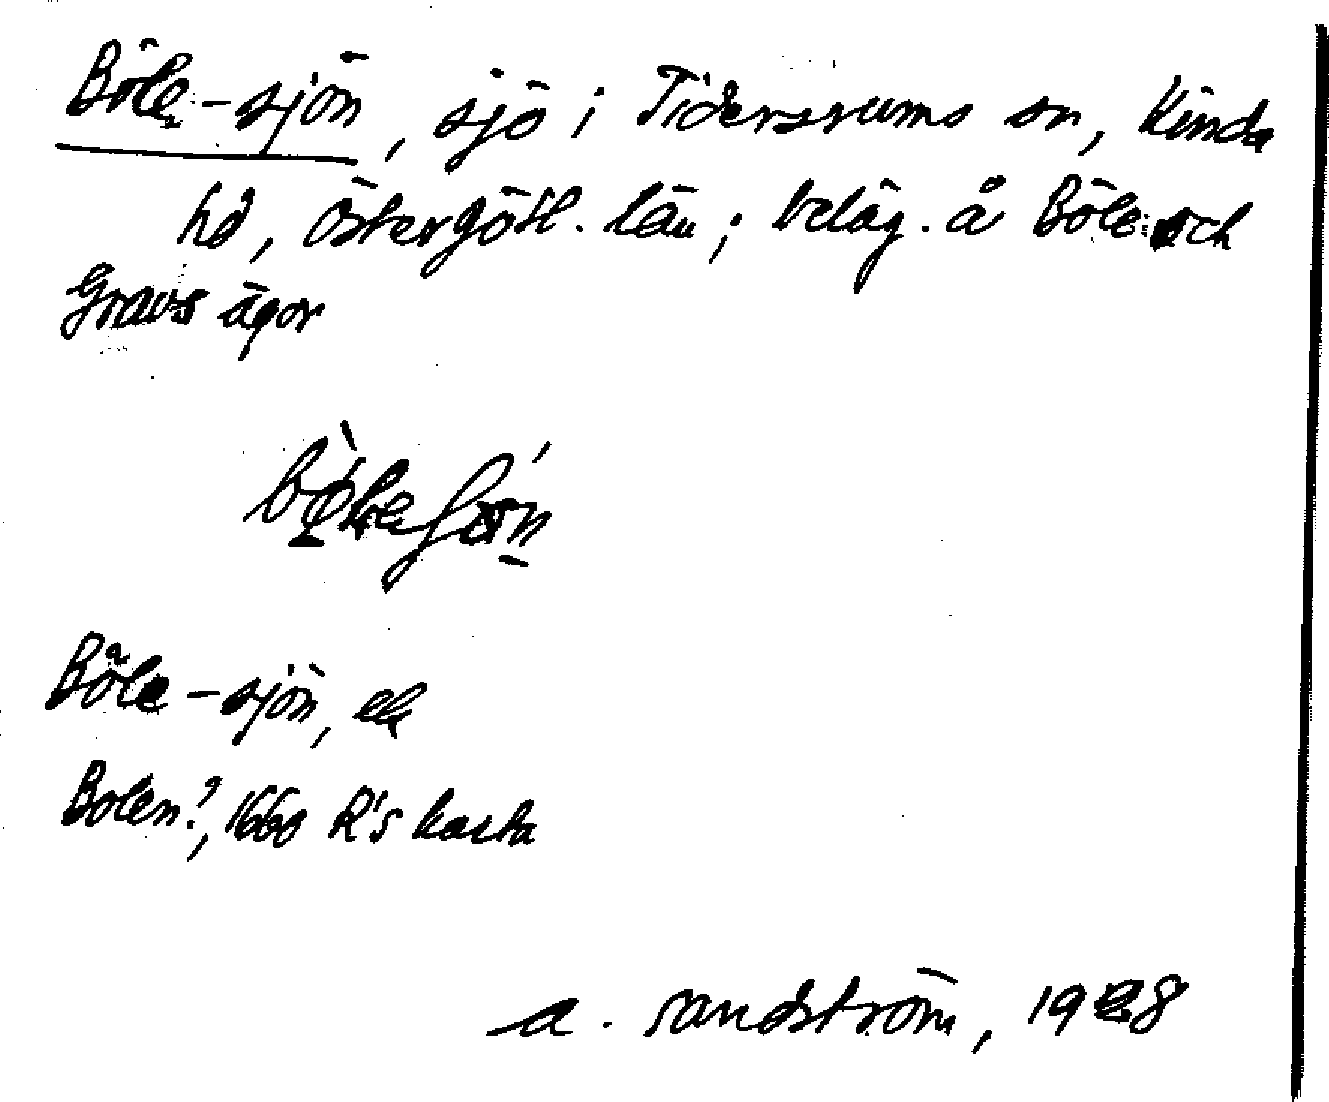 Böle-sjön, sjö i Tidersrums sn, Kinda
hd, Östergötl. län; beläg. å Böle och
Gravs ägor
Böle-sjön, ek
Bolen?, 1660 R's karta
A. Sandström, 1928